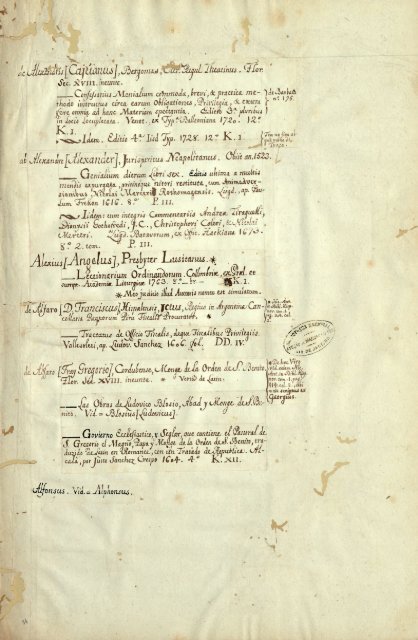 de Alexandris [Cajetanus], Bergomas, Cler. Regul. Theatinus. Flor.
Sec. XVIII. ineunte.
Confessarius Monialium commoda, brevi, & practica me-
thodo instructus circa earum Obligationes, Privilegia, & extera
fere omnia ad hanc Materiam spectantia. Editio 3.ª pluribus
in locis locupletata. Venet. ex Typ.ª Balleoniana 1720. 12.º
K. 1.
Idem. Editio 4.ª Iisd. Typ. 1728. 12.º K. 1.
de Barbosa
n.º 175.
ab Alexandro [Alexander], Jurisperitus Neapolitanus. Obiit an. 1523.
Genialium dierum Libri sex. Editio ultima a multis
mendis expurgata, pristinoque nitori restituta, cum Animadver-
sionibus Nicolai Mercerii Rothomagensis. Lugd. ap. Pau-
lum Frelon 1616. 8.º P. III.
Iidem cum integris Commentariis Andreæ Tiraquelli,
Dionysii Gothofredi, J. C., Christophori Coleri, & Nicolai
Merceri. Lugd. Batavorum, ex Offic. Hackiana 1673.
8.º 2. tom. P. III.
Alexius [Angelus], Presbyter Lusitanus.
Lectionarium Ordinandorum. Collimbriæ, ex
Academiæ Liturgicæ 1763. 8.º K. 1.
Meo judicio illud Auctoris nomen est simulatum.
de Alfaro [D. Franciscus] Hispalensis, Ictus, Regius in Argentinæ Can-
cellaria Regiorum Pro Fiscalis Procurator.
Tractatus de Officio Fiscalis, deque Fiscalibus Privilegiis.
Vallisoleti, ap. Ludov. Sanchez 1606. fol. DD. IV.
de Alfaro [Fray Gregorio] Cordubense, Monge de la Orden de S. Benito.
Flor. Sec. XVII. ineunte. Vertió de Latin.
Las Obras de Ludovico Blosio, Abad y Monge de S. Be-
nito. Vid. Blosius [Ludovicus].
Govierno Ecclesiastico, y Seglar, que contiene el Pastoral de
S. Gregorio el Magno, Papa, y Monge de la Orden de S. Benito, tra-
duzido de Latin en Romance, con un Tratado de Republica. Al-
cala, por Justo Sanchez Crespo 1604. 4.º K. XII.
Gregorius
Alfonsus. Vid. Alphonsus.